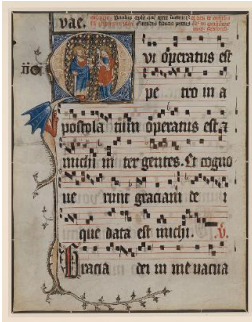 vae.
vi operatus est
pe tro in a
postola tum operatus est &
michi in ter gentes. Et cogno
ue runt graciam de i
que data est michi. V.
Gracia dei in me vacua